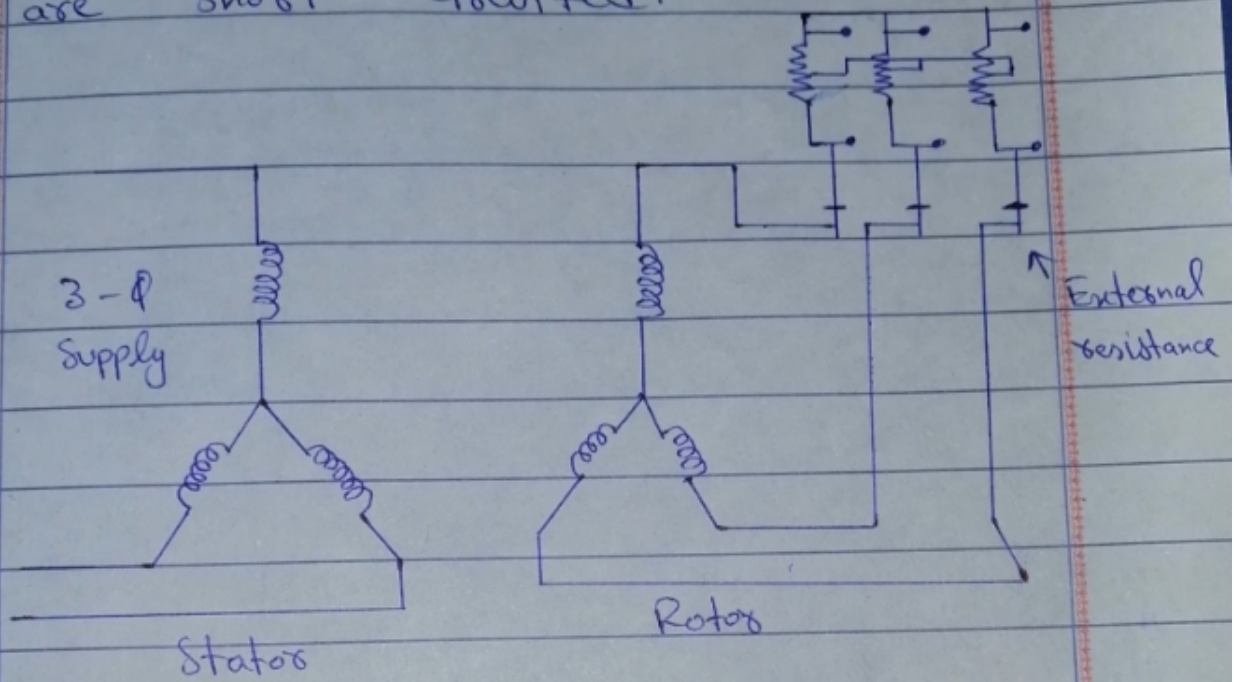 are short
3-φ
Supply
External
resistance
Rotor
Stator